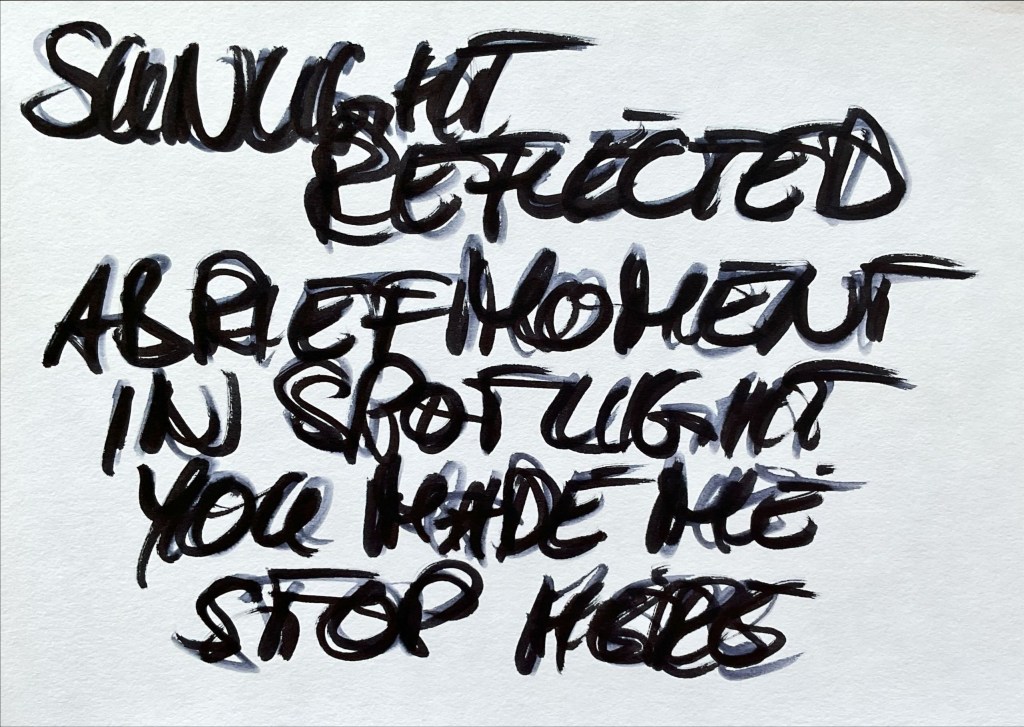 SUNLIGHT
REFLECTED
A BRIEF MOMENT
IN SPOTLIGHT
YOU MADE ME
STOP HERE